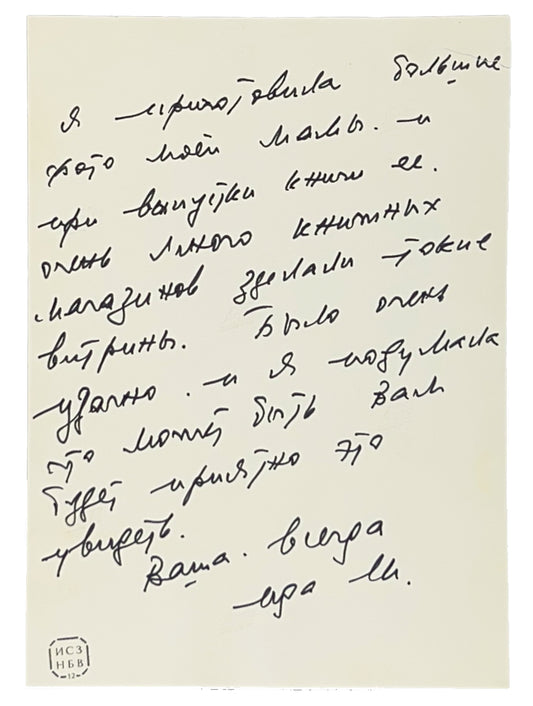 я приготовила большие
фото моей мамы. и
при выпустки книги ее.
очень много книжных
магазинов зделали такие
витрины. Было очень
удачно. и я подумала
что может быть Вам
будет приятно это
увидеть.
Ваша. всегда
ида Ш.
ИСЗ
НБВ
12